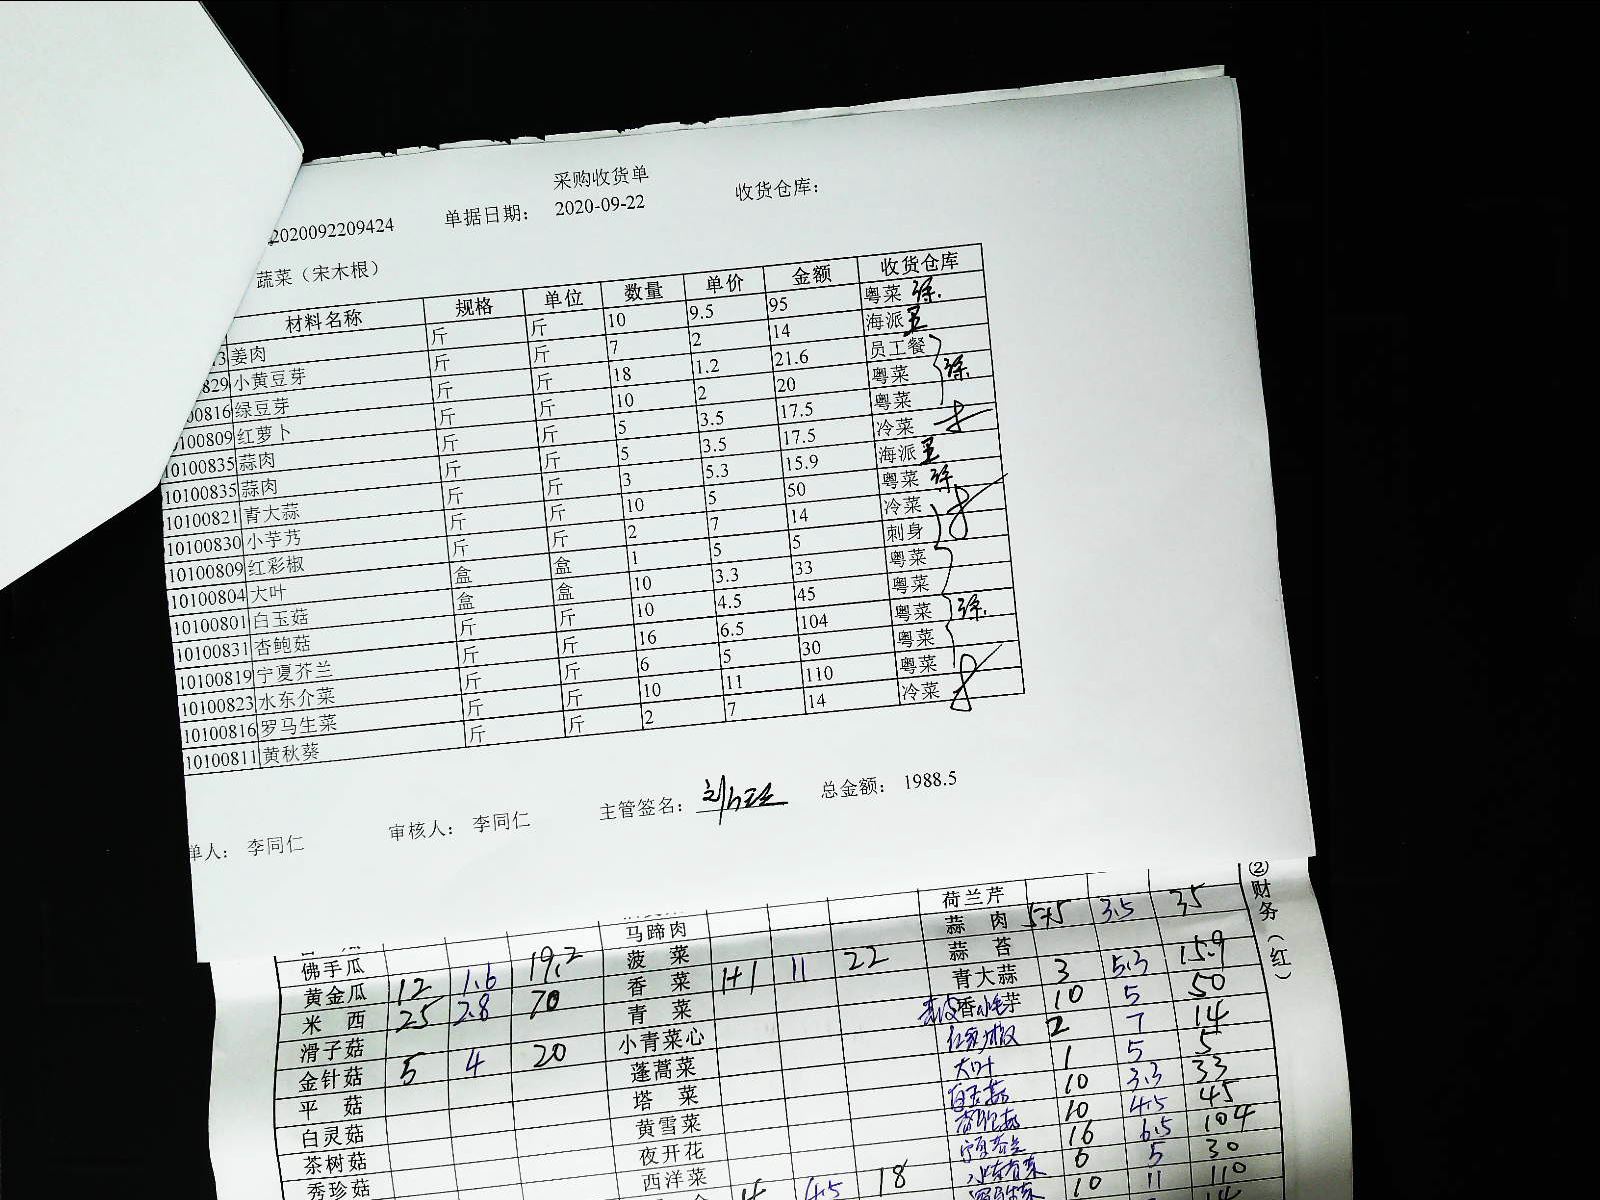 采购收货单
2020092209424 单据日期： 2020-09-22 收货仓库：
蔬菜（宋木根）
材料名称 规格 单位 数量 单价 金额 收货仓库
3 姜肉 斤 斤 10 9.5 95 粤菜 徐
829 小黄豆芽 斤 斤 7 2 14 海派 王
00816 绿豆芽 斤 斤 18 1.2 21.6 员工餐
0100809 红萝卜 斤 斤 10 2 20 粤菜 徐
10100835 蒜肉 斤 斤 5 3.5 17.5 粤菜
10100835 蒜肉 斤 斤 5 3.5 17.5 冷菜
10100821 青大蒜 斤 斤 3 5.3 15.9 海派 王
10100830 小芋艿 斤 斤 10 5 50 粤菜 徐
10100809 红彩椒 斤 斤 2 7 14 冷菜
10100804 大叶 盒 盒 1 5 5 刺身
10100801 白玉菇 盒 盒 10 3.3 33 粤菜
10100831 杏鲍菇 斤 斤 10 4.5 45 粤菜
10100819 宁夏芥兰 斤 斤 16 6.5 104 粤菜 徐
10100823 水东介菜 斤 斤 6 5 30 粤菜
10100816 罗马生菜 斤 斤 10 11 110 粤菜
10100811 黄秋葵 斤 斤 2 7 14 冷菜
单人： 李同仁 审核人： 李同仁 主管签名： 总金额： 1988.5
②财务（红）
荷兰芹
马蹄肉 蒜肉 5+5 3.5 35
佛手瓜 菠菜 蒜苔
黄金瓜 12 1.6 19.2 香菜 1+1 11 22 青大蒜 3 5.3 15.9
米西 25 2.8 70 青菜 香小毛芋 10 5 50
滑子菇 小青菜心 红彩椒 2 7 14
金针菇 5 4 20 蓬蒿菜 大叶 1 5 5
平菇 塔菜 白玉菇 10 3.3 33
白灵菇 黄雪菜 杏鲍菇 10 4.5 45
茶树菇 夜开花 宁夏芥兰 16 6.5 104
秀珍菇 西洋菜 水东芥菜 6 5 30
4 4.5 18 罗马生菜 10 11 110
14